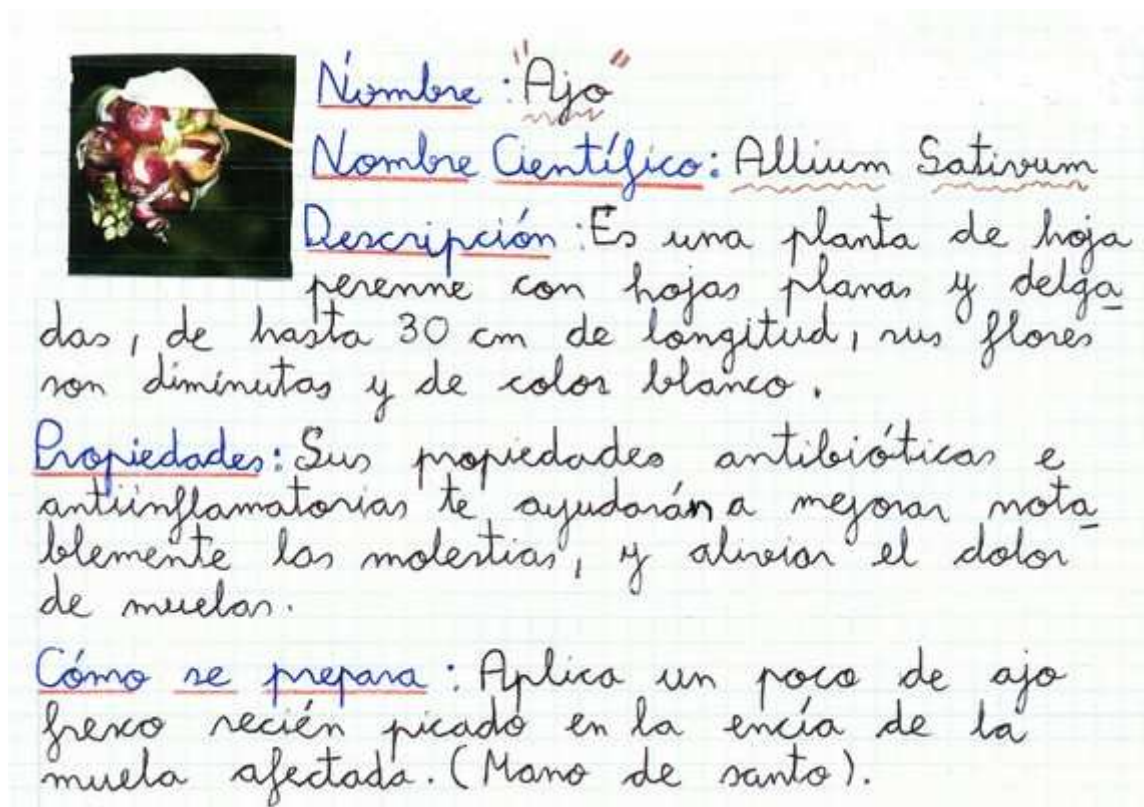 Nombre: "Ajo"
Nombre Científico: Allium Sativum
Descripción: Es una planta de hoja
perenne con hojas planas y delga
das, de hasta 30 cm de longitud, sus flores
son diminutas y de color blanco.
Propiedades: Sus propiedades antibióticas e
antiinflamatorias te ayudarán a mejorar nota
blemente las molestias, y aliviar el dolor
de muelas.
Cómo se prepara: Aplica un poco de ajo
fresco recién picado en la encía de la
muela afectada. (Mano de santo).